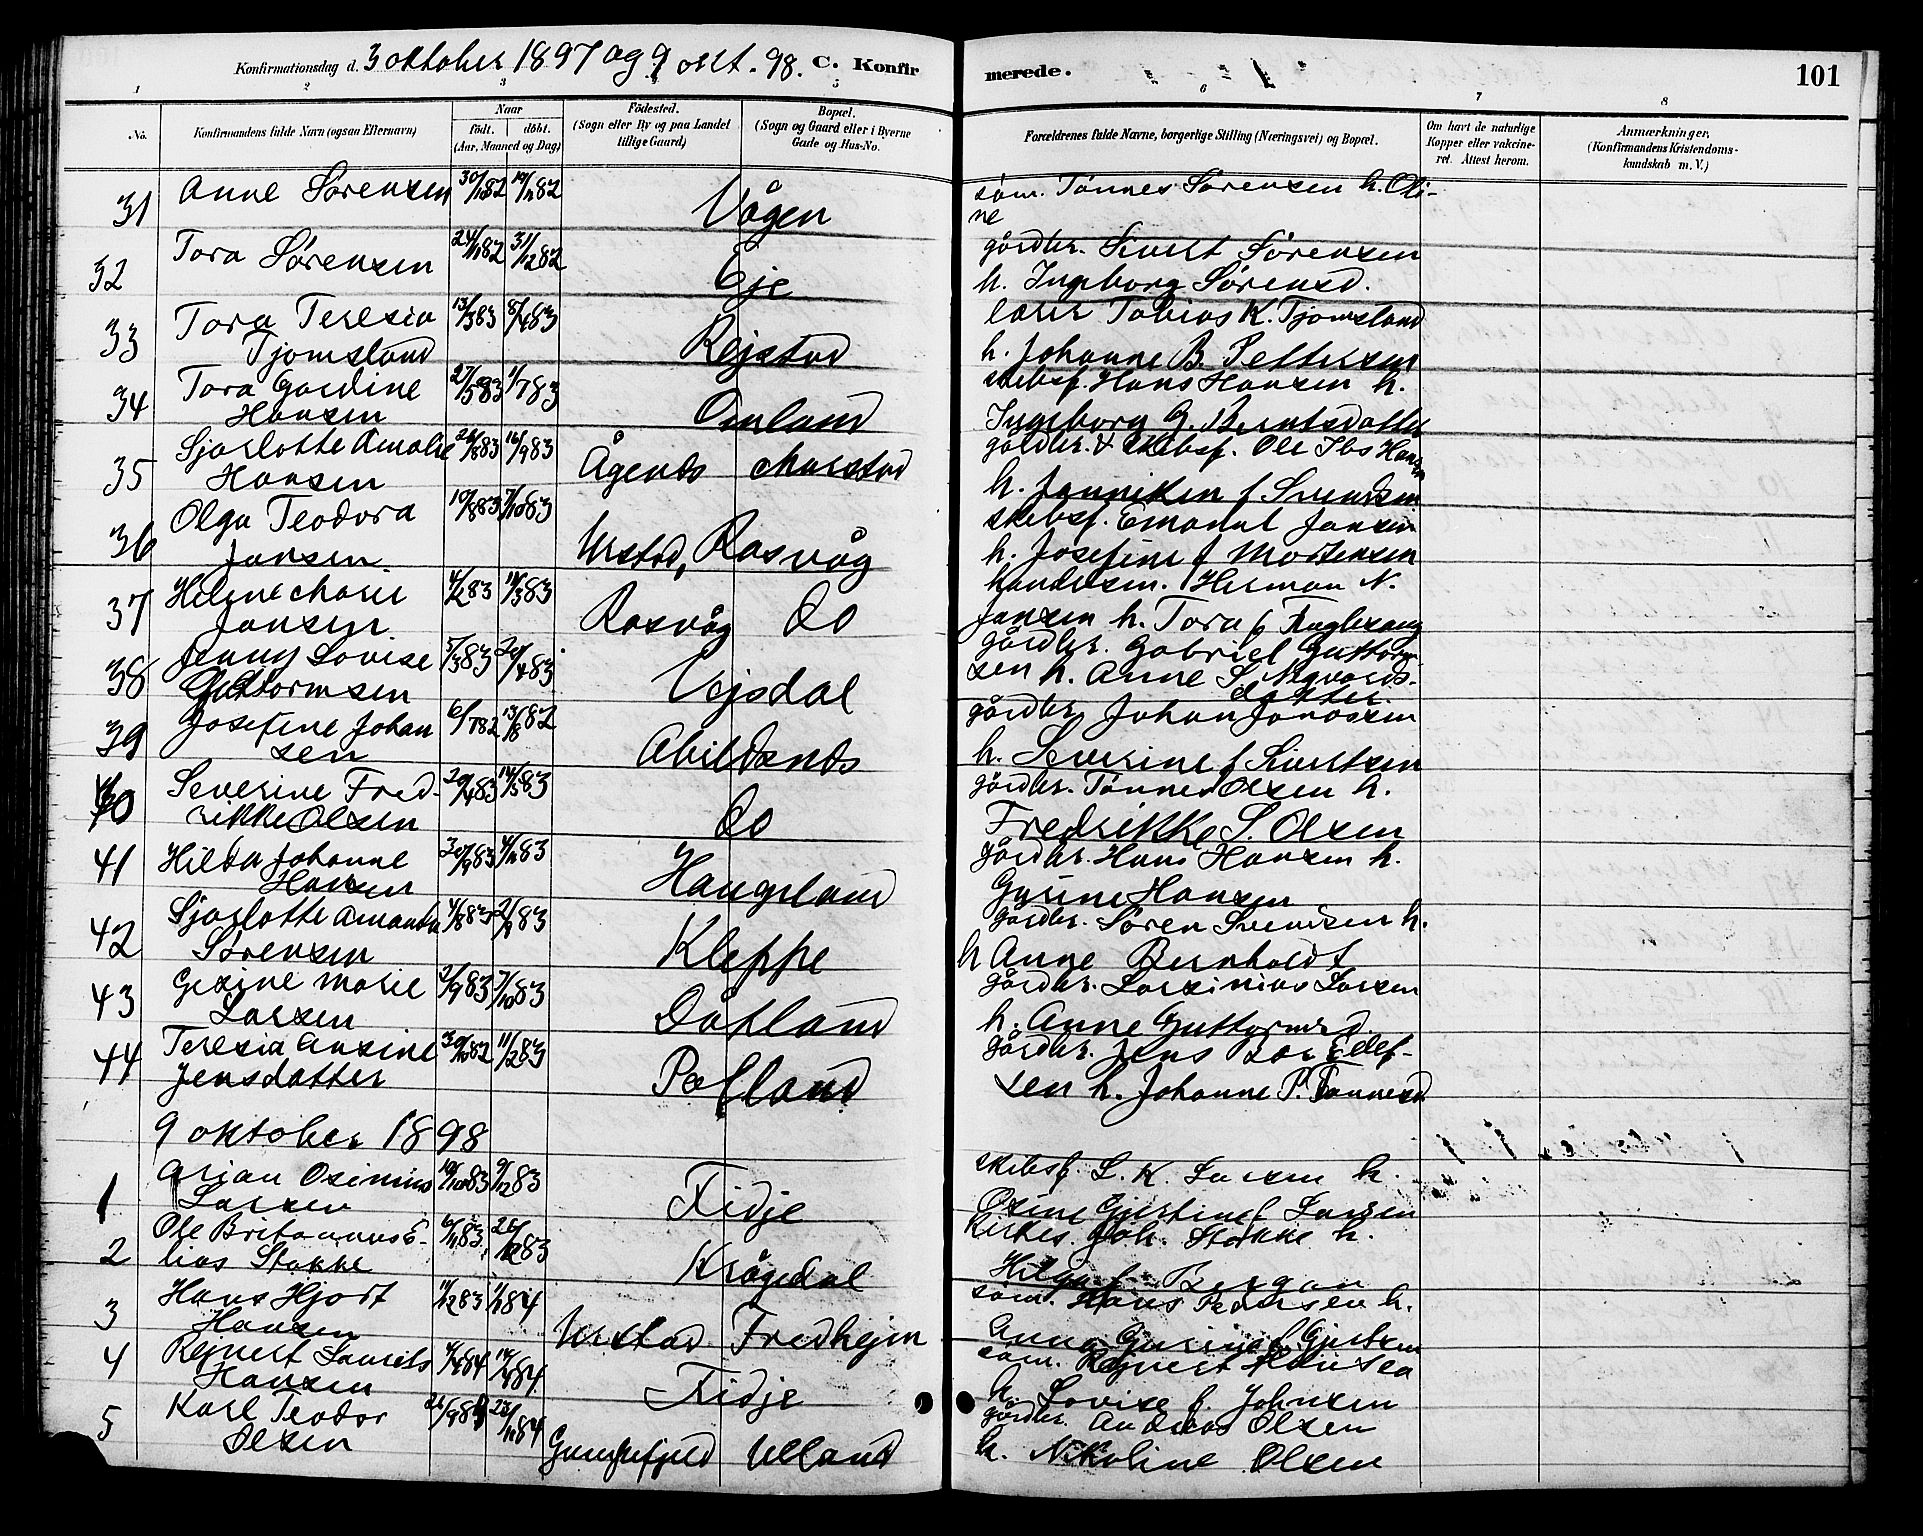 Konfirmationsdag d. 3 oktober 1897 og 9 okt. 98. C. Konfirmerede. 101
1 2 3 5 6 7 8
No. Konfirmandens fulde Navn (ogsaa Efternavn) Naar født. døbt. (Aar, Maaned og Dag) Fødested. (Sogn eller By og paa Landet tillige Gaard) Bopæl. (Sogn og Gaard eller i Byerne Gade og Hus-No. Forældrenes fulde Navne, borgerlige Stilling (Næringsvei) og Bopæl. Om havt de naturlige Kopper eller vakcineret. Attest herom. Anmærkninger, (Konfirmandens Kristendomskundskab m. V.)
31 Anne Sørensen 30/10 82 19/11 82 Vågen søm. Tønnes Sørensen h. Oli-
ne
32 Tora Sørensen 24/11 82 31/12 82 Eje gårdbr. Sivert Sørensen
h. Ingeborg Sørensd.
33 Tora Teresia 13/3 83 8/4 83 Rejstad lærer Tobias K. Tjomsland
Tjomsland h. Johanne B. Pettersen
34 Tora Gardine 27/5 83 1/7 83 Omland skibsf. Hans Hansen h.
Hansen Ingeborg G. Berntsdatter
35 Sjarlotte Amalie 26/8 83 16/9 83 Ågenes Marstad gårdbr. & skibsf. Ole Ibs Hansen
Hansen h. Janniken f Svendsen
36 Olga Teodora 19/8 83 7/10 83 Urstad, Rasvåg skibsf. Emanuel Jansen
Jansen h. Josefine f Mortensen
37 Helene Marie 4/2 83 18/3 83 Rasvåg do handelsm. Herman N.
Jansen Jansen h. Tora f Fuglevang
38 Jenny Lovise 5/3 83 29/4 83 Vejsdal gårdbr. Gabriel Guttorm-
Guttormsen sen h. Anne S. Nqvards-
datter
39 Josefine Johan 6/7 82 13/8 82 Abildsnes gårdbr Johan Jonassen
sen h. Severine f Sivertsen
40 Severine Fred- 20/4 83 14/5 83 do gårdbr. Tønnes Olsen h.
rikke Olsen Fredrikke S. Olsen
41 Hilda Johanne 30/9 83 4/11 83 Haugeland gårdbr. Hans Hansen h.
Hansen Gurine Hansen
42 Sjarlotte Amanda 4/8 83 2/9 83 Kleppe gårdbr. Søren Svendsen h.
Sørensen h Anne Bernholdt
43 Gesine Marie 2/9 83 7/10 83 Dåtland gårdbr. Larsinius Larsen
Larsen h. Anne Guttormsd.
44 Teresia Ansine 30/12 82 11/2 83 Pefland gårdbr. Jens Lor Edef-
Jensdatter sen h. Johanne P. Tønnesd
9 oktober 1898
1 Arian Osinius 19/10 83 9/12 83 Fidje skibsf. L. K. Larsen h.
Larsen Osine Gjertine f Larsen
2 Ole Britannus E- 6/11 83. 26/12 83 Krågedal Joh. Stakke h.
lias Stakke Helga f Bergan
3 Hans Hjort 11/12 83 1/1 84 Urstad Fredhejm søm. Hans Pedersen h.
Hansen Anna Gurine f Gjertsen
4 Rejnert Laurits 4/4 84 14/4 84 Fidje søm. Rejnert Hansen
Hansen h. Lovise f. Johnsen
5 Karl Teodor 21/9 84 23/11 84 Ulland gårdbr. Andreas Olsen
Olsen h. Nikoline Olsen